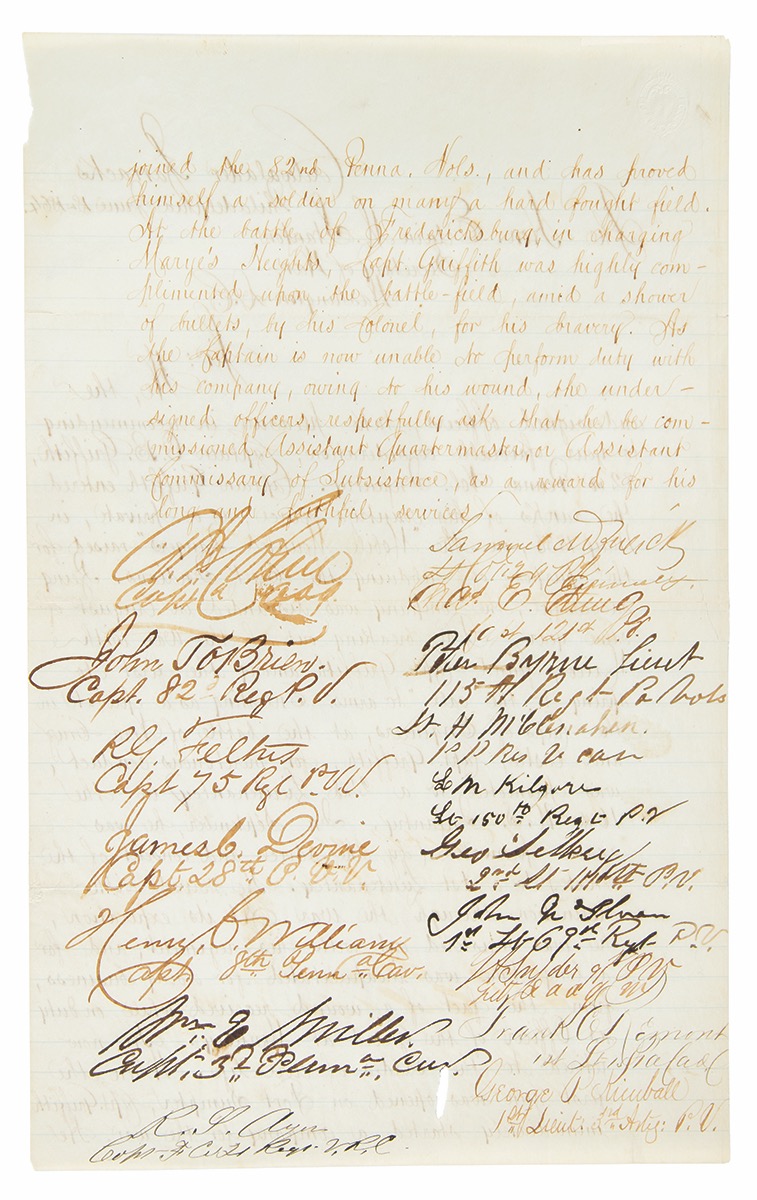 joined the 82nd Penna. Vols., and has proved
himself a soldier on many a hard fought field.
At the battle of Fredericksburg, in charging
Marye's Heights, Capt. Griffith was highly com-
plimented upon the battle-field, amid a shower
of bullets, by his Colonel, for his bravery. As
the Captain is now unable to perform duty with
his company, owing to his wound, the under-
signed officers, respectfully ask that he be com-
missioned Assistant Quartermaster, or Assistant
Commissary of Subsistence, as a reward for his
long and faithful services.
Capt
John T OBrien.
Capt. 82d Reg P. V.
R. G. Feltus
Capt 75 Regt P. V.
James C. Devine
Capt. 28th P. V. V.
Henry C. Williams
Capt 8th Penna Cav.
Wm E Miller.
Capt. 3d Penna. Cav.
Capt. Co 21 Regt V. R. C.
Samuel M
Chas. E.
121st P. V.
Peter Byrne Lieut
115th Regt Pa Vols
Lt. H McClenahen.
L M Kilgore
Lt 150th Regt P. V
Geo
2nd Lt P. V.
John McIlvan
1st Lt 69th Regt P. V.
Snyder
Frank
1st Lt
George P. Kimball
1st Lieut. 2nd Arty: P. V.